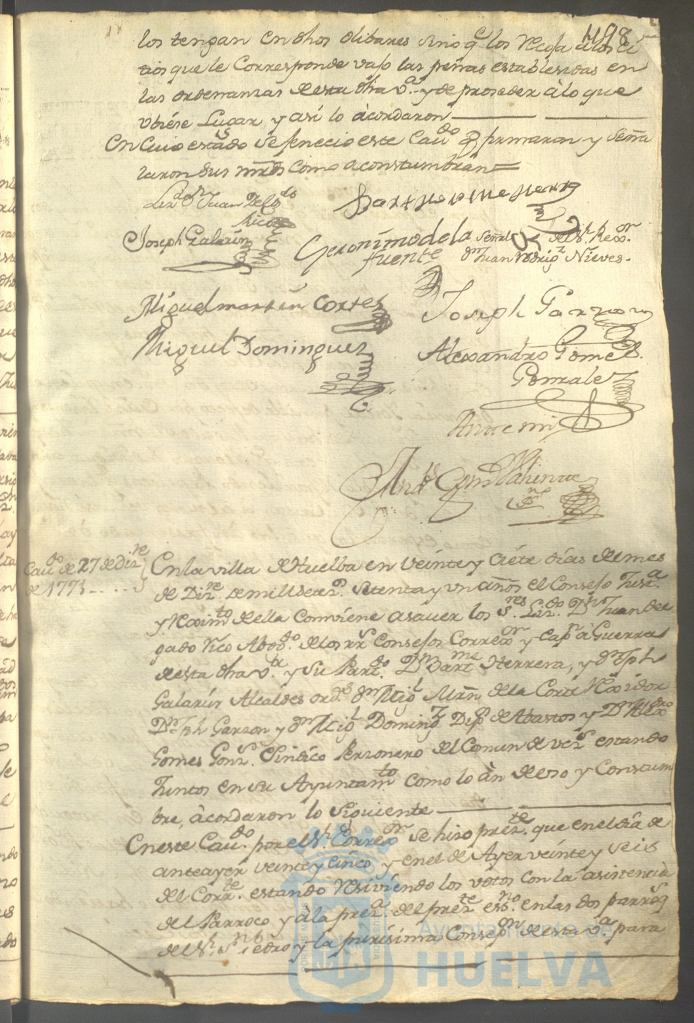 1198
los tengan en dhos olibares sino q.e los
tios que le Corresponde vajo las penas establesidas en
las ordenanzas de esta dha v.a y de proseder à lo que
vbiese Lugar y asi lo acordaron
En cuio estado se fenecio este Cau.do q firmaron y seña
laron sus mrds como acostumbran
Liz.do Dn Juan Delg.do
Rico
Bartholome Herrera
Joseph Galarin
Geronimo de la
fuente
Señal del Sr Rex.or
Dn Juan Rodrig.z Nieves
Miguel martin Cortes
Joseph Garzon
Miguel Dominguez
Alexandro Gomes
Gonzalez
Ante mi
Cau.do de 27 de Diz.re
de 1771
En la villa de Huelba en veinte y siete dias del mes
de Diz.re de mill setez.s setenta y un años el Consejo Just.a
y Reximt.o de ella Combiene a sauer los S.res Liz.do Dn Juan Del
gado Rico Abog.do de los R.s Consejos Correg.or y Cap.n à Guerra
de esta dha v.a y su Part.do Dn Bart.me Herrera, y Dn Jph
Galarin Alcaldes ord.s Dn Mig.l Mrn. de la Corte Rexidor
Dn Jph Garzon y Dn Mig.l Doming.z Dip.s de Abastos y Dn Alex.o
Gomes Gonz.z Sindico Perzonero del Comun de vez.s estando
Juntos en su Ayuntam.to como lo àn de uso y Constum
bre, àcordaron lo siguiente
En este Cau.do por el S.r Correg.or se hizo prez.te que en el dia de
anteayer veinte y cinco, y en el de Ayer veinte y seis
del Corr.te estando resiviendo los votos con la asistencia
del Parroco y à la prez.a del prez.te ess.no en las dos parroq.s
del S.r S.n Pedro y la purissima Consep.on de esta v.a para
Ayuntamiento de
HUELVA